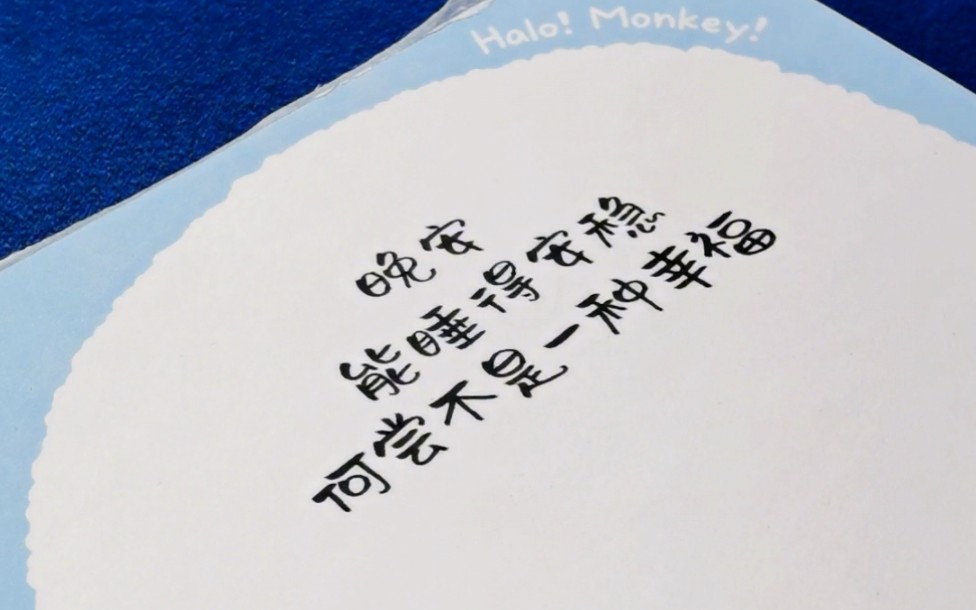 Halo! Monkey!
晚安
能睡得安稳
何尝不是一种幸福